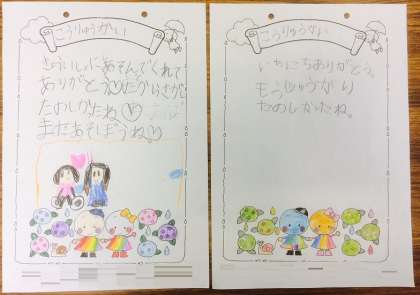 こうりゅうかい
きょういっしょにあそんでくれて
ありがとう♡たからさがし
たのしかたね♡
またあそぼうね♡
こうりゅうかい
いちにちありがとう。
もうじゅうがり
たのしかたね。